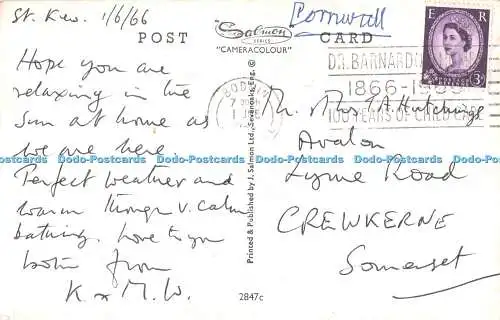 St. Kew. 1/6/66
POST
"Salmon
SERIES
"CAMERACOLOUR"
Cornwall
CARD
E R
3D
DR. BARNARDO
1866-1966
100 YEARS OF CHILD CARE
BODMIN
Hope you are
relaxing in the
sun at home as
we are here
Perfect weather and
warm though v. calm
bathing. Love to you
both from
K x M.W.
Printed & Published by J. Salmon Ltd., Sevenoaks, Eng. ©
2847c
Mr. & Mrs T.A. Hutchings
Avalon
Lyme Road
CREWKERNE
Somerset
Dodo-Postcards Dodo-Postcards Dodo-Postcards Dodo-Postcards Dodo-Postcards Dodo-Postcards